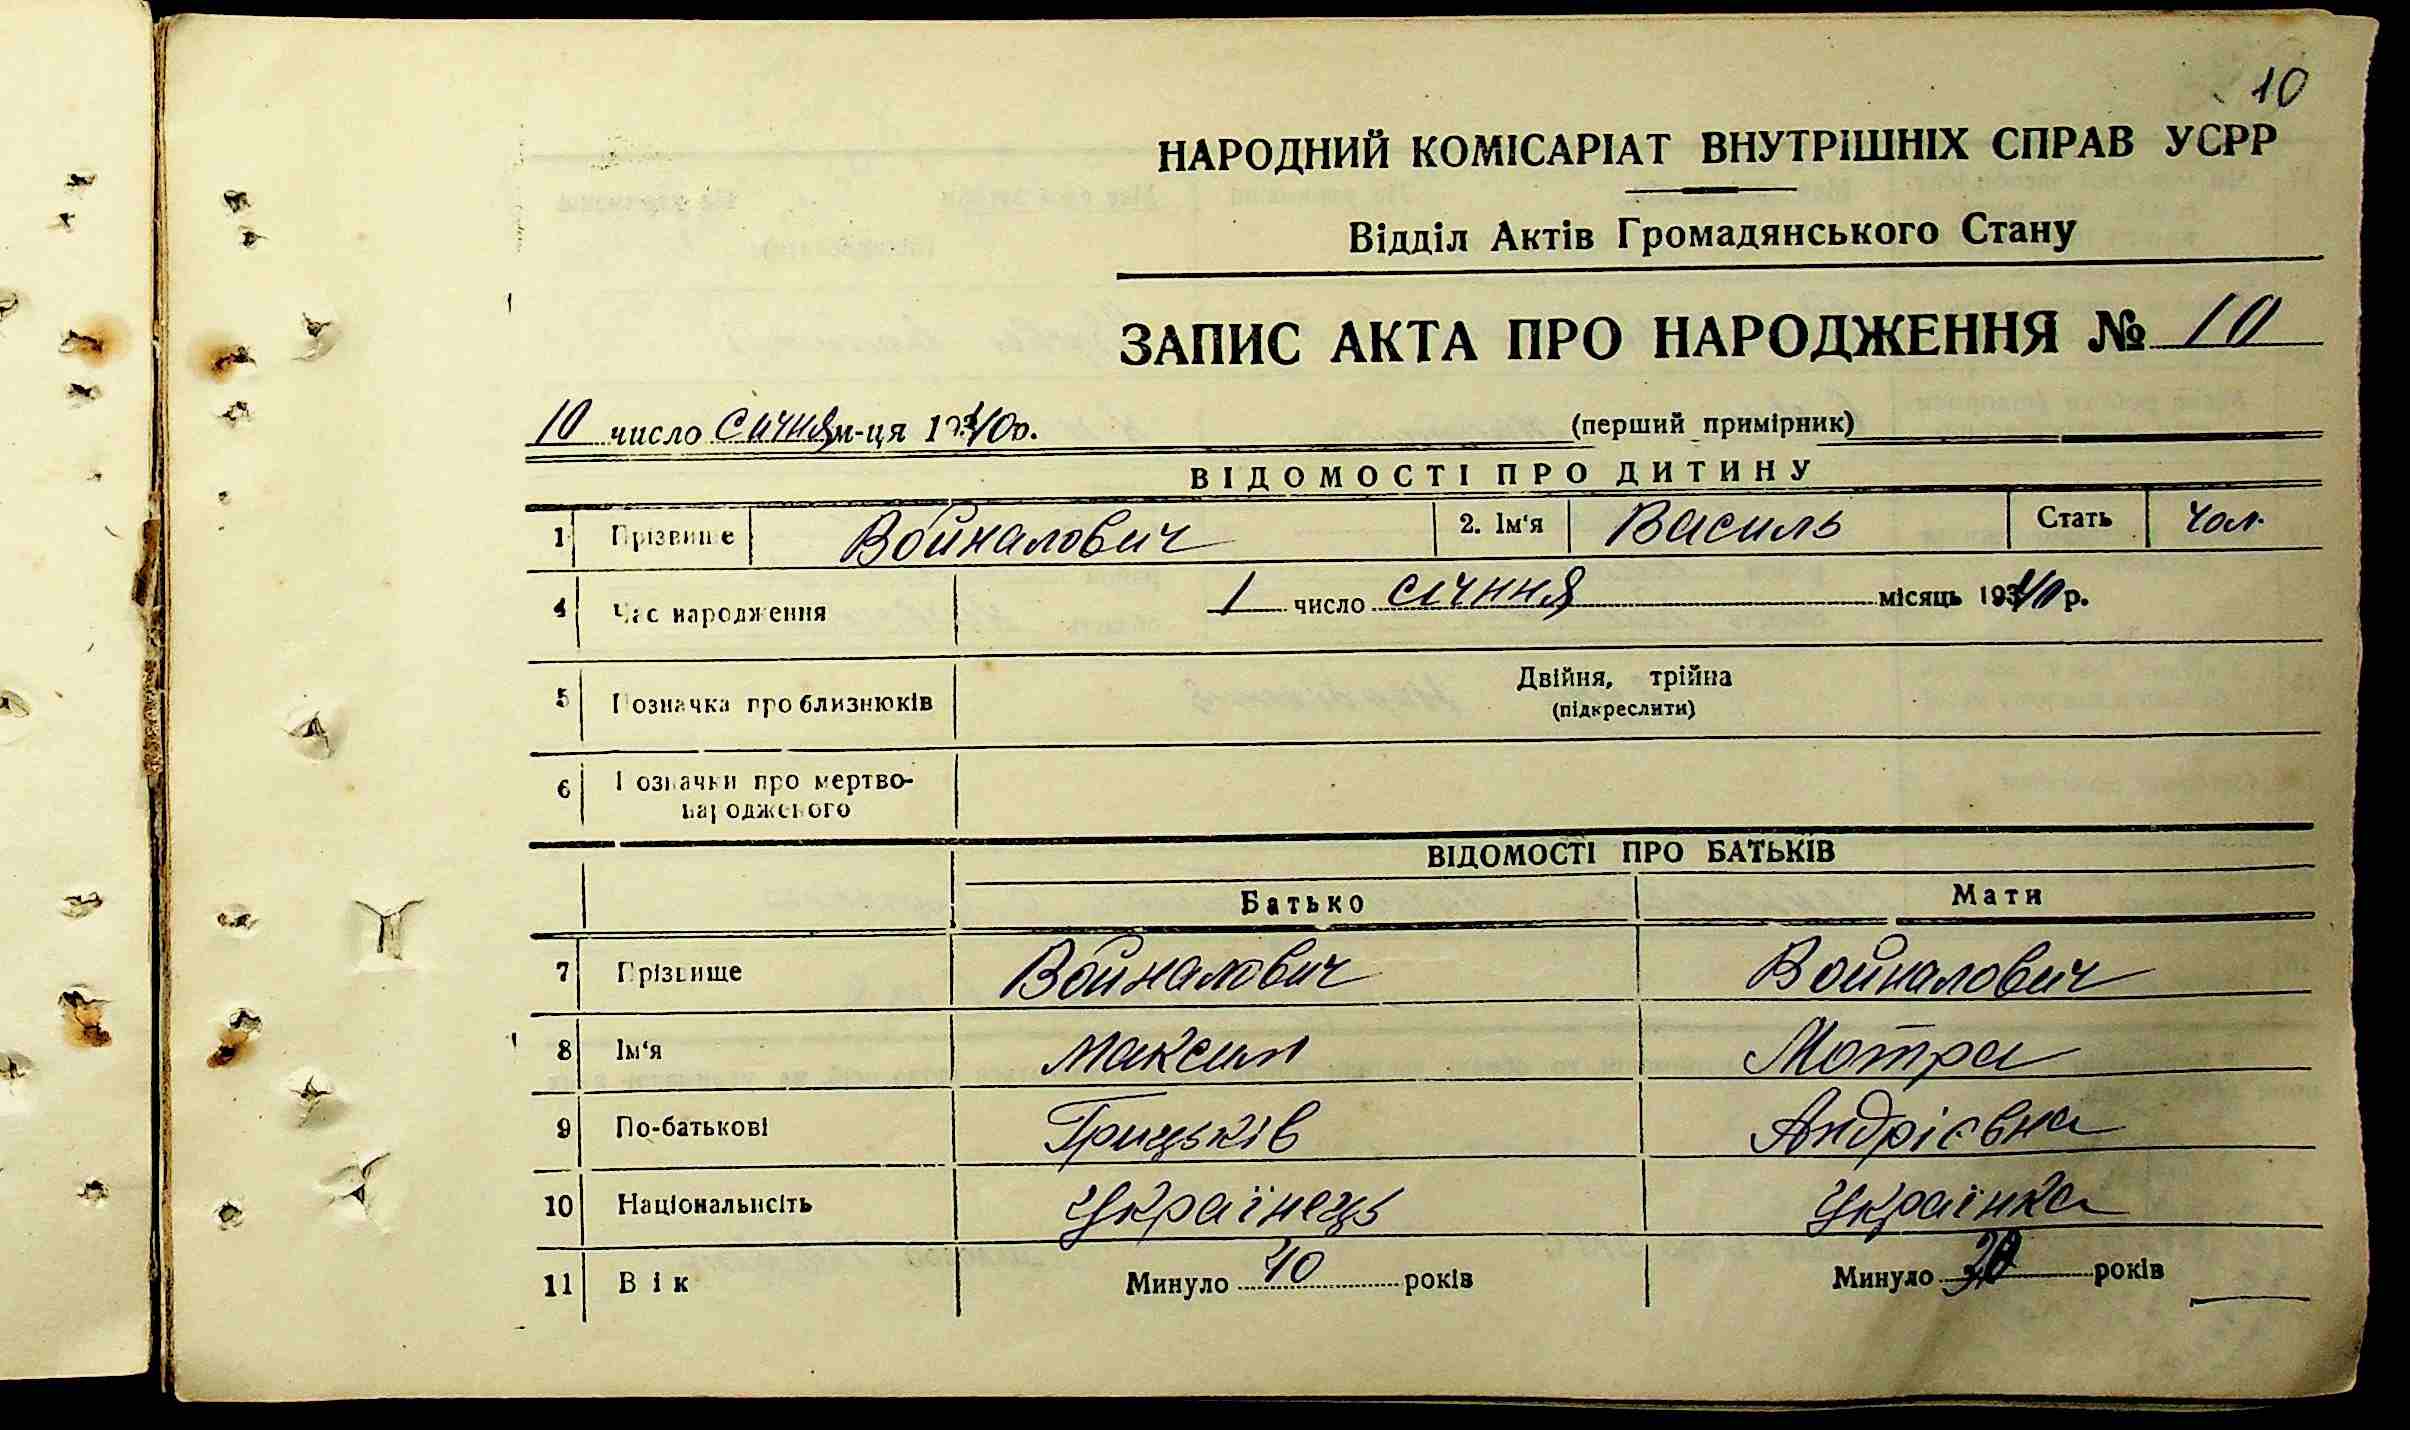 10
НАРОДНИЙ КОМІСАРІАТ ВНУТРІШНІХ СПРАВ УСРР
Відділ Актів Громадянського Стану
ЗАПИС АКТА ПРО НАРОДЖЕННЯ № 10
10 число січня м-ця 1940 р. (перший примірник)
ВІДОМОСТІ ПРО ДИТИНУ
1 Прізвище Войналович 2. Ім'я Василь Стать чол.
4 Час народження 1 число січння місяць 1940 р.
5 Позначка про близнюків Двійня, трійна
(підкреслити)
6 Позначки про мертво-
народженого
ВІДОМОСТІ ПРО БАТЬКІВ
Батько Мати
7 Прізвище Войналович Войналович
8 Ім'я Максим Мотра
9 По-батькові Грицьків Андрієвна
10 Національність Українець Українка
11 Вік Минуло 40 років Минуло років